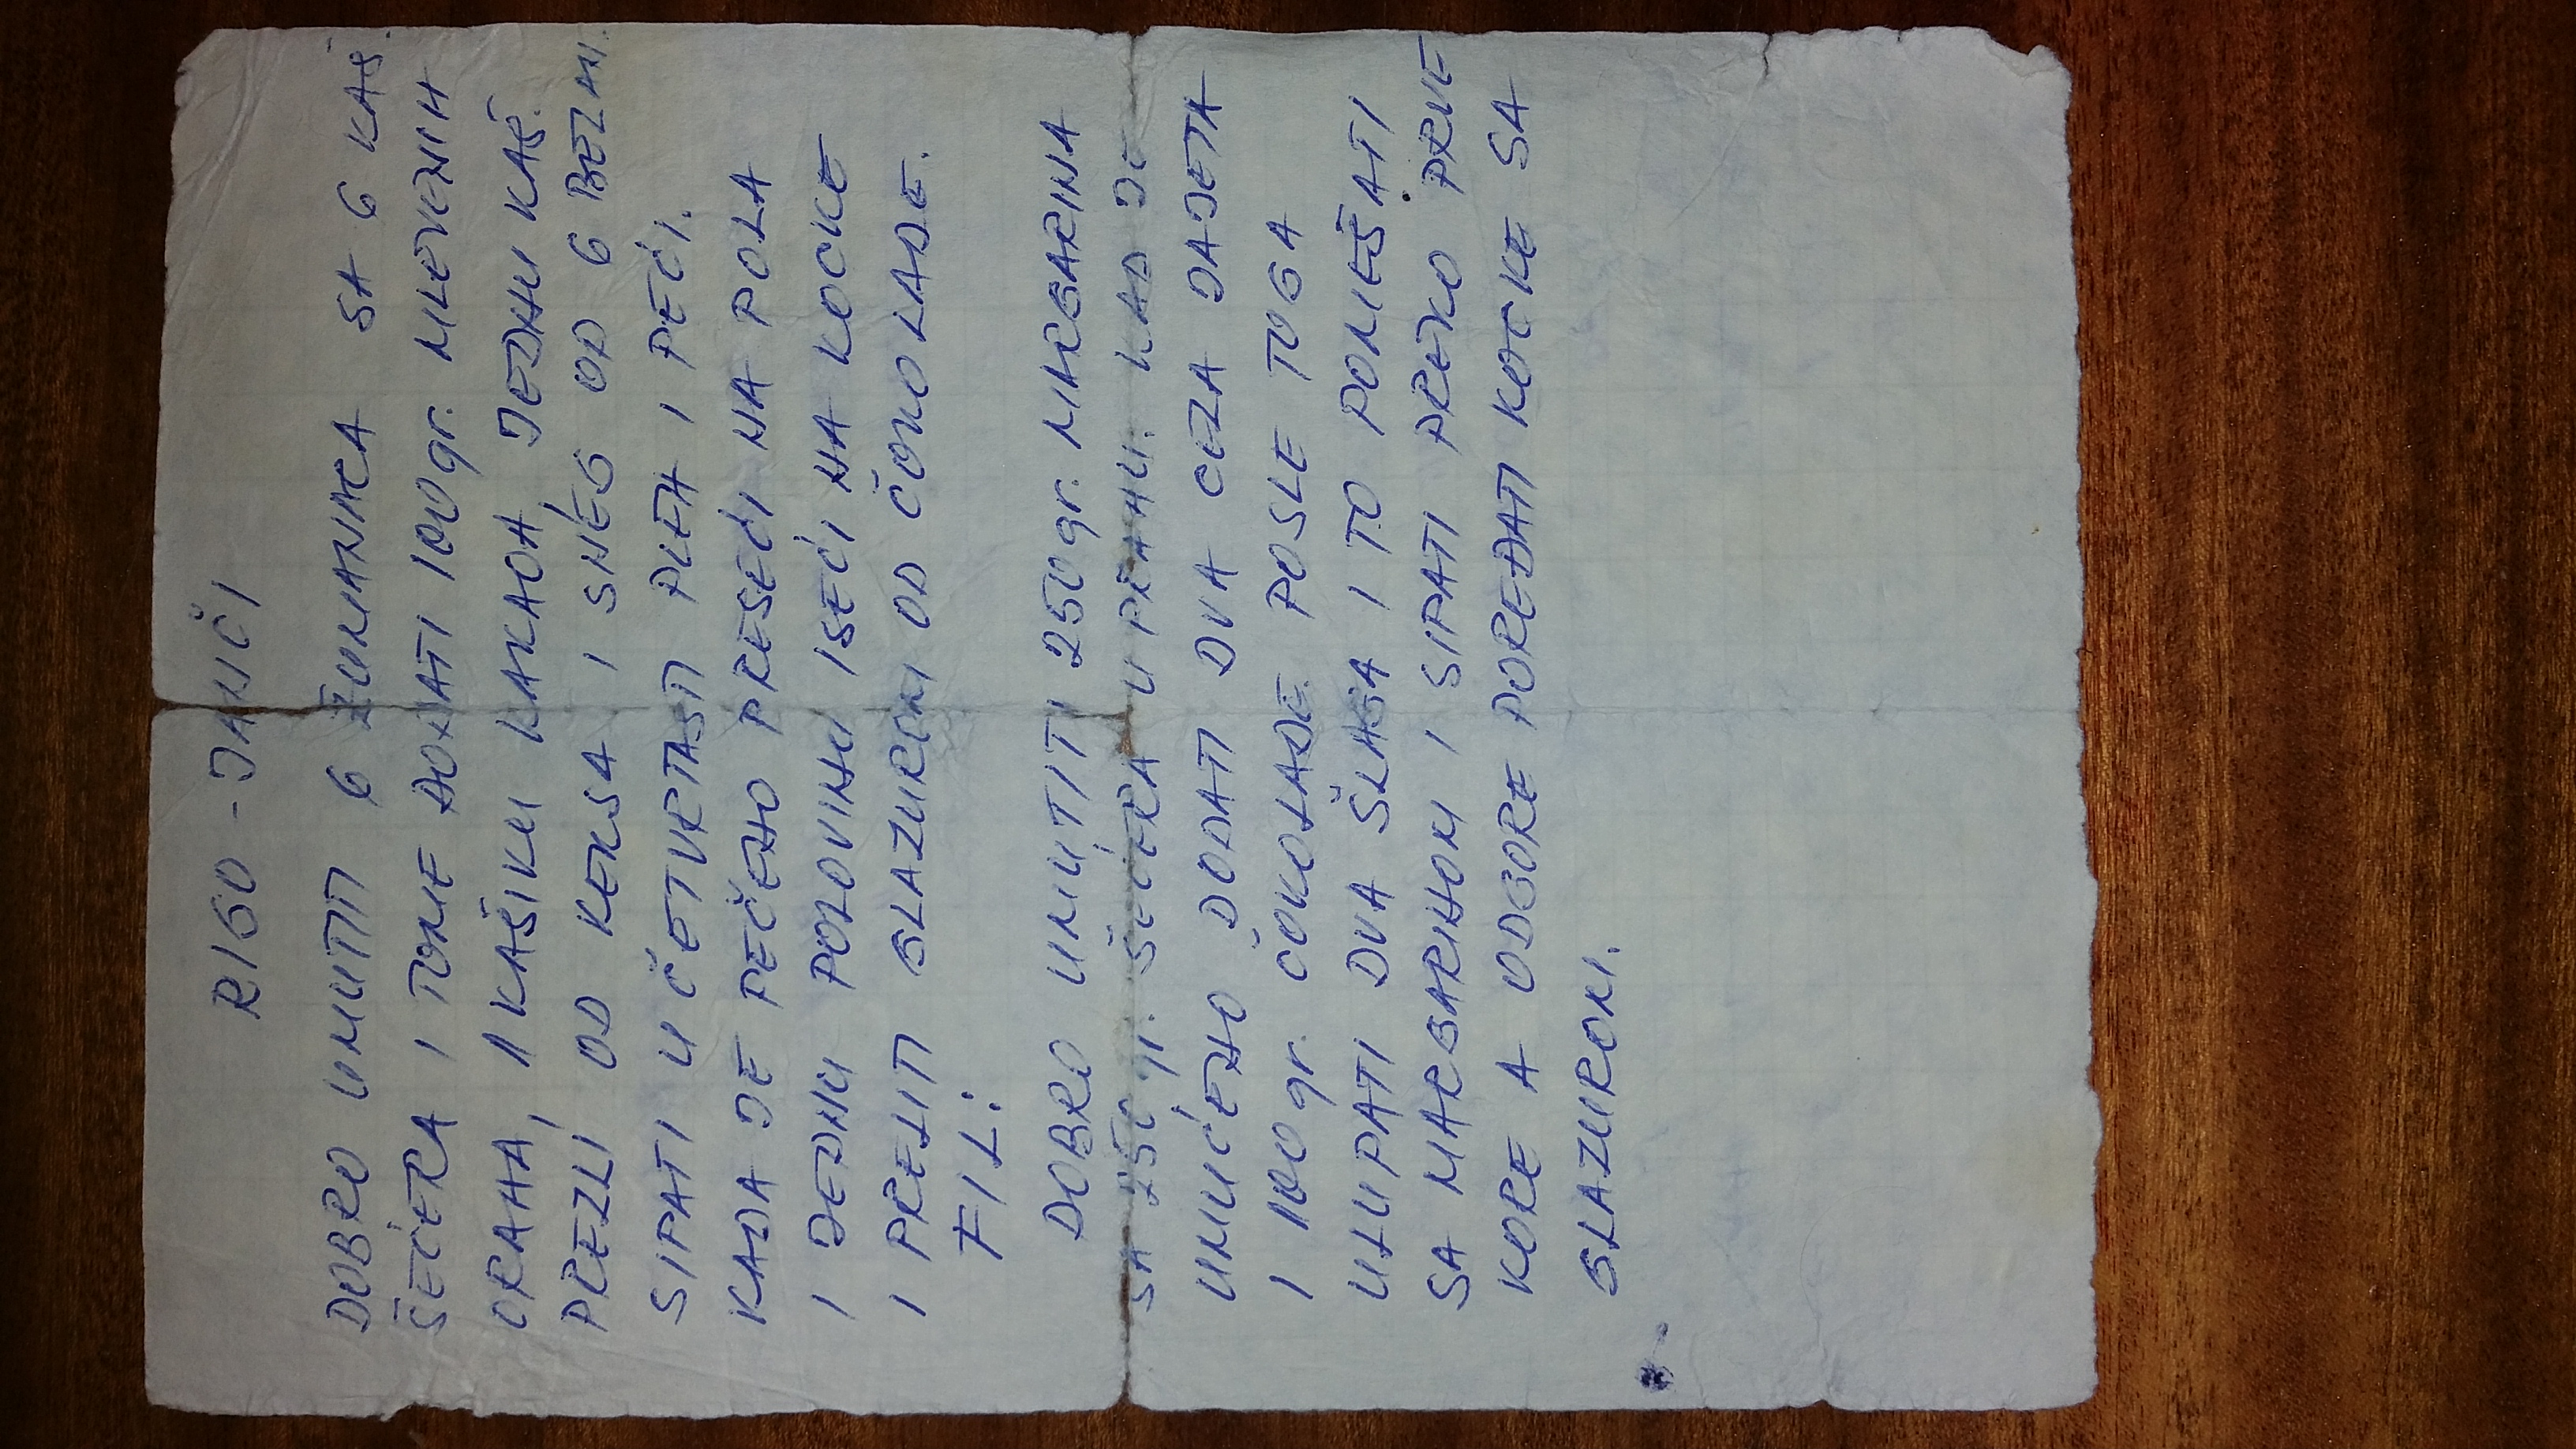 RIGO - JANČI
DOBRO UMUTITI 6 ŽUMANACA SA 6 KAŠ.
ŠEĆERA I TOME DODATI 100 gr. MLEVENIH
ORAHA, 1 KAŠIKU KAKAOA, JEDNU KAŠ.
PREZLI OD KEKSA I SNEG OD 6 BELAN.
SIPATI U ČETVRTASTI PLEH I PEĆI.
KADA JE PEČENO PRESEĆI NA POLA
I JEDNU POLOVINU ISEĆI NA KOCKE
I PRELITI GLAZUROM OD ČOKOLADE.
FIL:
DOBRO UMUTITI 250 gr. MARGARINA
SA 250 gr. ŠEĆERA U PRAHU. KAD JE
UMUĆENO DODATI DVA CELA JAJETA
I 100 gr. ČOKOLADE. POSLE TOGA
ULUPATI DVA ŠLAGA I TO POMEŠATI
SA MARGARINOM I SIPATI PREKO PRVE
KORE A ODGORE POREĐATI KOCKE SA
GLAZUROM.